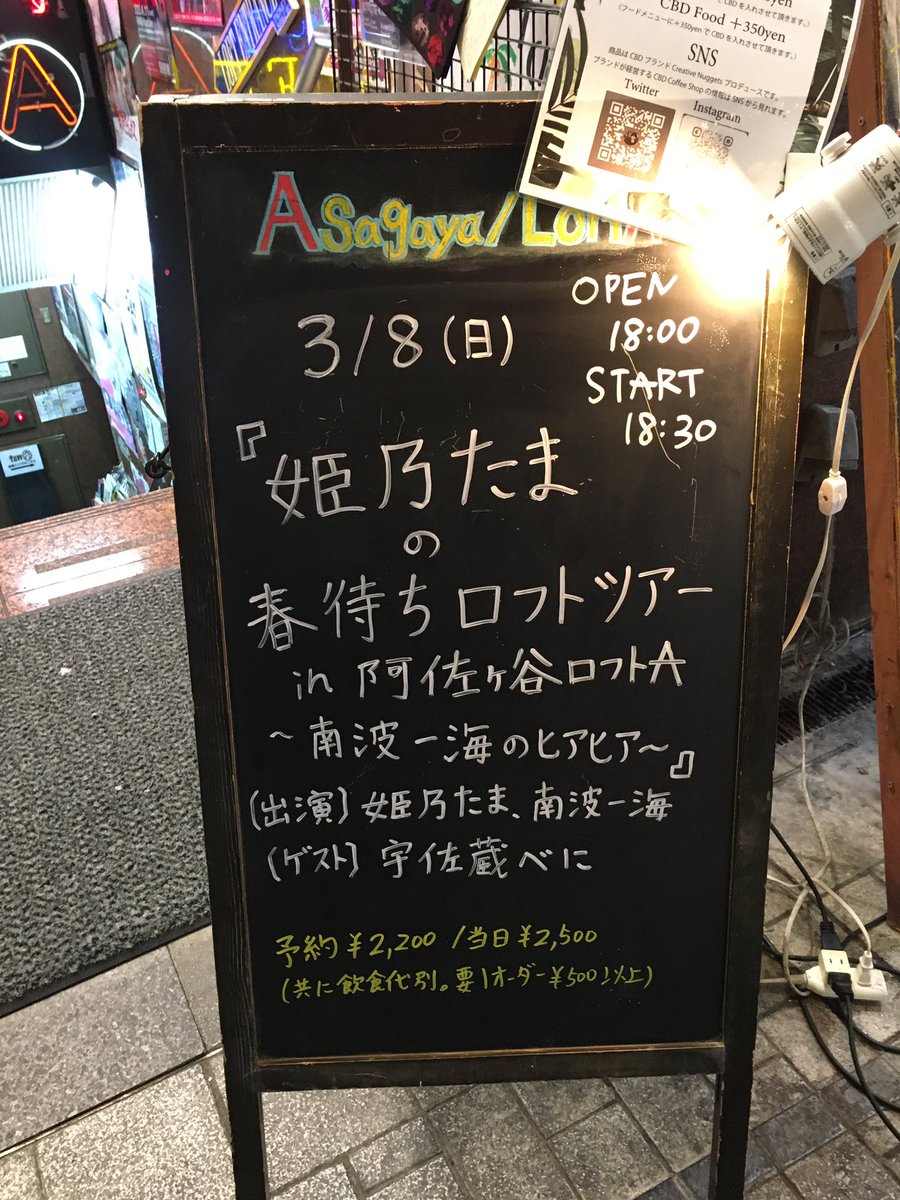 A
yen
CBD Food +350yen
(フードメニューに+350yenでCBDを入れさせて頂きます。)
SNS
商品はCBDブランド Creative Nuggets プロデュースです。
ブランドが経営するCBD Coffee Shopの情報はSNSから見れます。
Twitter Instagram
Asagaya/Loft
3/8(日)
OPEN
18:00
START
18:30
『姫乃たま
の
春待ちロフトツアー
in 阿佐ヶ谷ロフトA
~南波一海のヒアヒア~』
(出演)姫乃たま、南波一海
(ゲスト)宇佐蔵べに
予約¥2,200/当日¥2,500
(共に飲食代別。要1オーダー¥500以上)